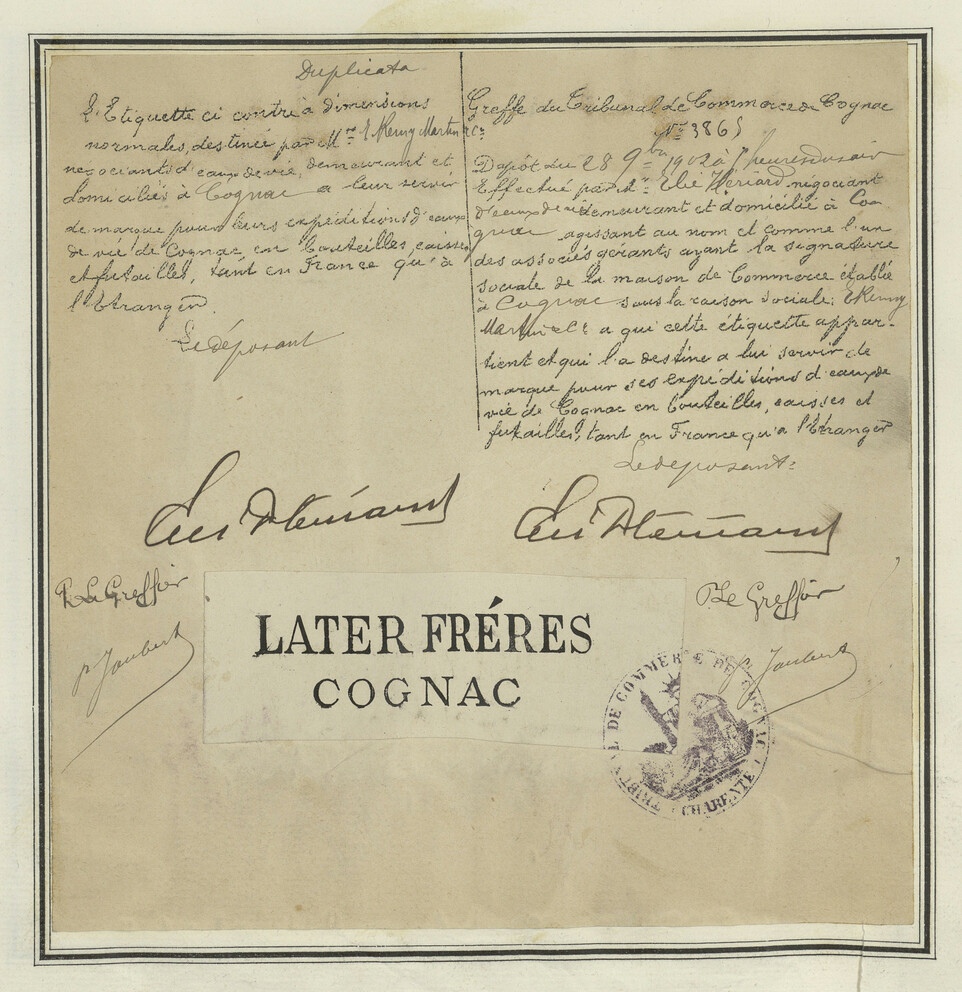 Duplicata
L'Etiquette ci contre à dimensions
normales, destinée par Mrs E. Remy Martin & Co
négociants d'eaux de vie, demeurant et
domiciliés à Cognac a leur servir
de marque pour leurs expéditions d'eaux
de vie de Cognac en bouteilles, caisses
et futailles, tant en France qu'à
l'Etranger
Le déposant
Greffe du Tribunal de Commerce de Cognac
No 3865
Dépôt du 28 9bre 1902 à 7 heures du soir
Effectué par Mr Elie Hériard négociant
d'eaux de vie demeurant et domicilié à Co-
gnac agissant au nom et comme l'un
des associés gérants ayant la signature
sociale de la maison de Commerce établie
à Cognac sous la raison sociale: E Remy
Martin & Co a qui cette étiquette appar-
tient et qui l'a destine a lui servir de
marque pour ses expéditions d'eaux de
vie de Cognac en bouteilles, caisses et
futailles, tant en France qu'a l'Etranger
Le déposant:
P. Le Greffier
p. Jaubert
P. Le Greffier
p. Jaubert
LATER FRÉRES
COGNAC
TRIBUNAL DE COMMERCE DE COGNAC
CHARENTE